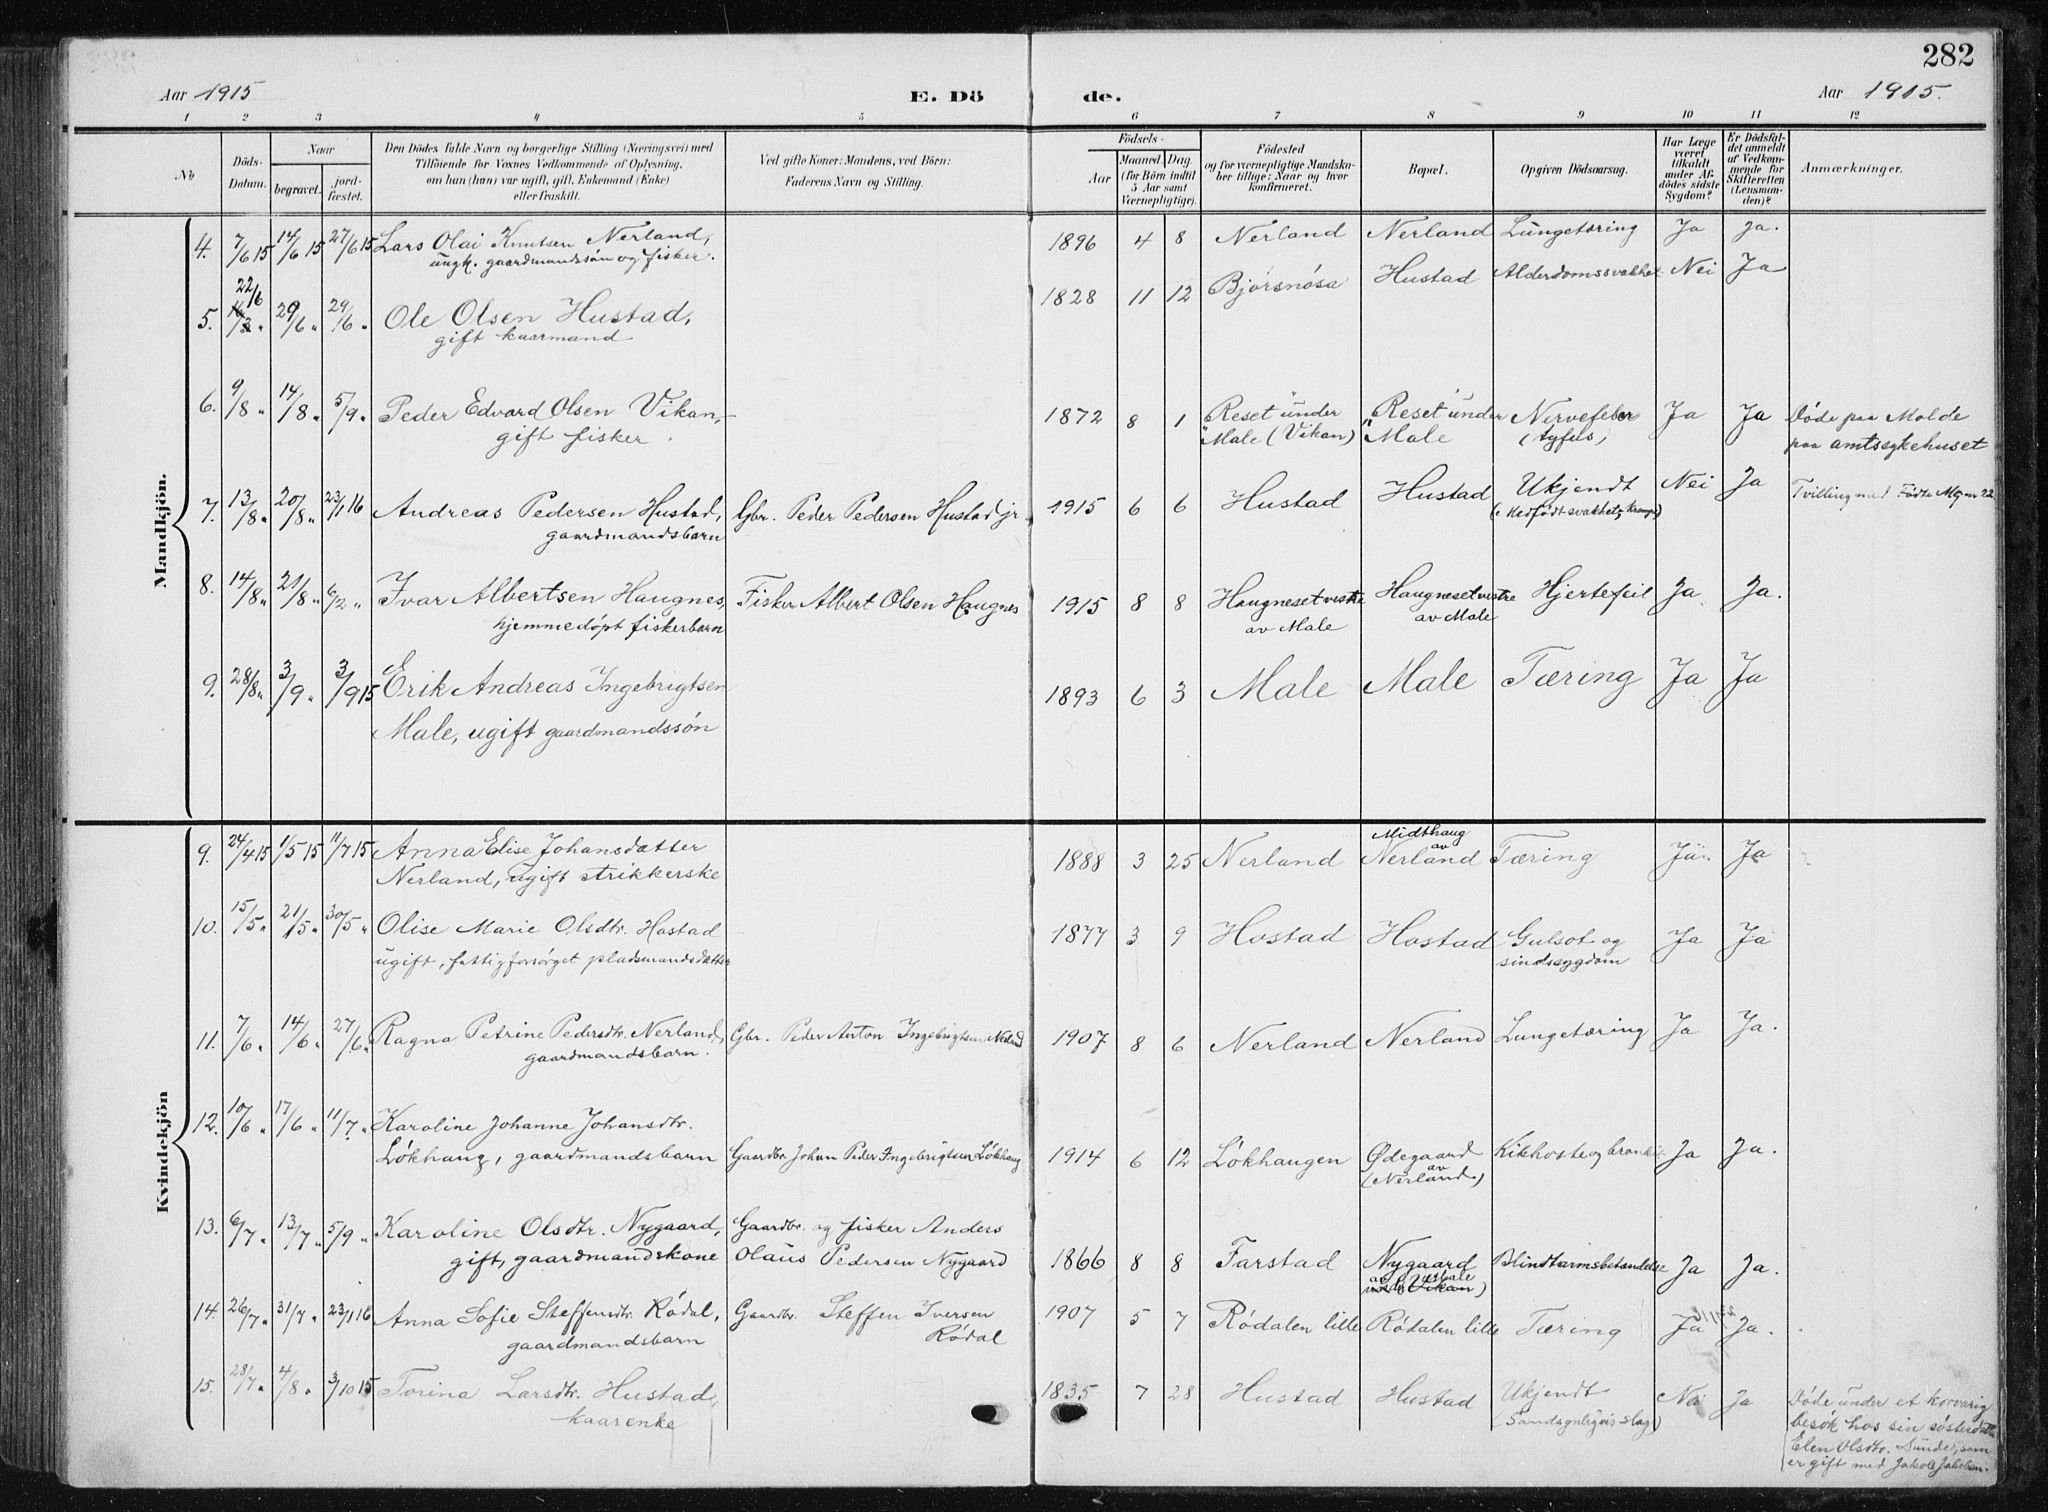 282
Aar 1915
E. Dö
de.
Aar 1915.
1 2 3 4 5 6 7 8 9 10 11 12
No
Döds-Datum.
Naar
begravet.
jord-fæstet.
Den Dödes fulde Navn og borgerlige Stilling (Næringsvei) med
Tilföiende for Voxnes Vedkommende af Oplysning,
om han (hun) var ugift, gift, Enkemand (Enke)
eller fraskilt.
Ved gifte Koner: Mandens, ved Börn:
Faderens Navn og Stilling.
Födsels-
Aar
Maaned Dag.
(for Börn indtil
5 Aar samt
Værnepligtige).
Födested
og for værnepligtige Mandska-
ber tillige: Naar og hvor
konfirmeret.
Bopæl.
Opgiven Dödsaarsag.
Har Læge
været
tilkaldt
under Af-
dödes sidste
Sygdom?
Er Dödsfal-
det anmeldt
af Vedkom-
mende for
Skifteretten
(Lensman-
den)?
Anmærkninger.
Mandkjön.
4. 7/6 15 14/6 15 27/6 15 Lars Olai Knutsen Nerland, 1896 4 8 Nerland Nerland Lungetæring Ja Ja.
ungk. gaardmandssön og fisker.
5. 22/6 " 29/6 " 29/6 " Ole Olsen Hustad, 1828 11 12 Bjórsnósa Hustad Alderdomssvakhet Nei Ja
gift kaarmand
6. 9/8 " 14/8 " 5/9 " Peder Edvard Olsen Vikan, 1872 8 1 Reset under Reset under Nervefeber Ja Ja Döde paa Molde
gift fisker. Male (Vikan) Male (tyfus) paa amtssykehuset
7. 13/8 " 20/8 " 23/1 16 Andreas Pedersen Hustad, Gbr. Peder Pedersen Hustad jr 1915 6 6 Hustad Hustad Ukjendt Nei Ja Tvilling med Födte Mg nr 22
gaardmandsbarn (Medfödt svakhet, krampe)
8. 14/8 " 21/8 " 6/2 " Ivar Albertsen Haugnes, Fisker Albert Olsen Haugnes 1915 8 8 Haugneset vestre Haugneset vestre Hjertefeil Ja Ja.
hjemmedöpt fiskerbarn av Male av Male
9. 28/8 " 3/9 " 3/9 15 Erik Andreas Ingebrigtsen 1893 6 3 Male Male Tæring Ja Ja
Male, ugift gaardmandssön
Kvindekjön
9. 24/4 15 1/5 15 11/7 15 Anna Elise Johansdatter 1888 3 25 Nerland Midthaug av Nerland Tæring Ja Ja
Nerland, ugift strikkerske
10. 15/5 " 21/5 " 30/5 " Olise Marie Olsdtr. Hostad 1877 3 9 Hostad Hostad Gulsot og Ja Ja
ugift, fattigforsörget pladsmandsdatter sindssygdom
11. 7/6 " 14/6 " 27/6 " Ragna Petrine Pedersdtr. Nerland, Gbr. Peder Anton Ingebrigtsen Nerland 1907 8 6 Nerland Nerland Lungetæring Ja Ja.
gaardmandsbarn.
12. 10/6 " 17/6 " 11/7 " Karoline Johanne Johansdtr.
Lökhaug, gaardmandsbarn Gaardbr. Johan Peder Ingebrigtsen Lökhaug 1914 6 12 Lökhaugen Ødegaard Kikhoste og bronkit Ja Ja.
av (Nerland)
13. 6/7 " 13/7 " 5/9 " Karoline Olsdtr. Nygaard, Gaardbr. og fisker Anders
gift, gaardmandskone Olaus Pedersen Nygaard 1866 8 8 Farstad Nygaard Blindtarmsbetændelse Ja Ja.
14. 26/7 " 31/7 " 23/1 16 Anna Sofie Steffensdtr. Rödal, Gaardbr. Steffen Iversen 1907 5 7 Rödalen lille Rödalen lille Tæring Ja Ja.
gaardmandsbarn Rödal
15. 28/7 " 4/8 " 3/10 15 Torina Larsdtr. Hustad, 1835 7 28 Hustad Hustad Ukjendt Nei Ja Döde under et kortvarig
kaarenke (Sandsynligvis slag) besök hos sin sösterdatter
Elen Olsdtr. Sunde, som
er gift med Jakob Jakobsen.